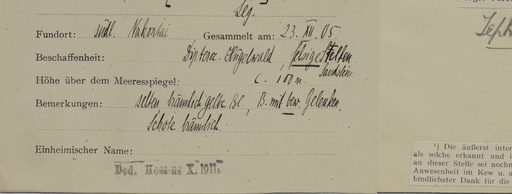 Leg.
Fundort: südl. Nakorntai Gesammelt am: 23. XII. 05
Beschaffenheit: Diptero. Hügelwald, felsige Stellen
Sandstein
Höhe über dem Meeresspiegel: c. 100 m.
Bemerkungen: selten, bräunlich gelbe Bl., B. mit bew. Gelenken,
Schote bräunlich.
Einheimischer Name:
Ded. Hosseus X. 1911.
¹) Die äußerst inter
als solche erkannt und i
an dieser Stelle sei nochm
Anwesenheit im Kew u. a
bindlichster Dank für die